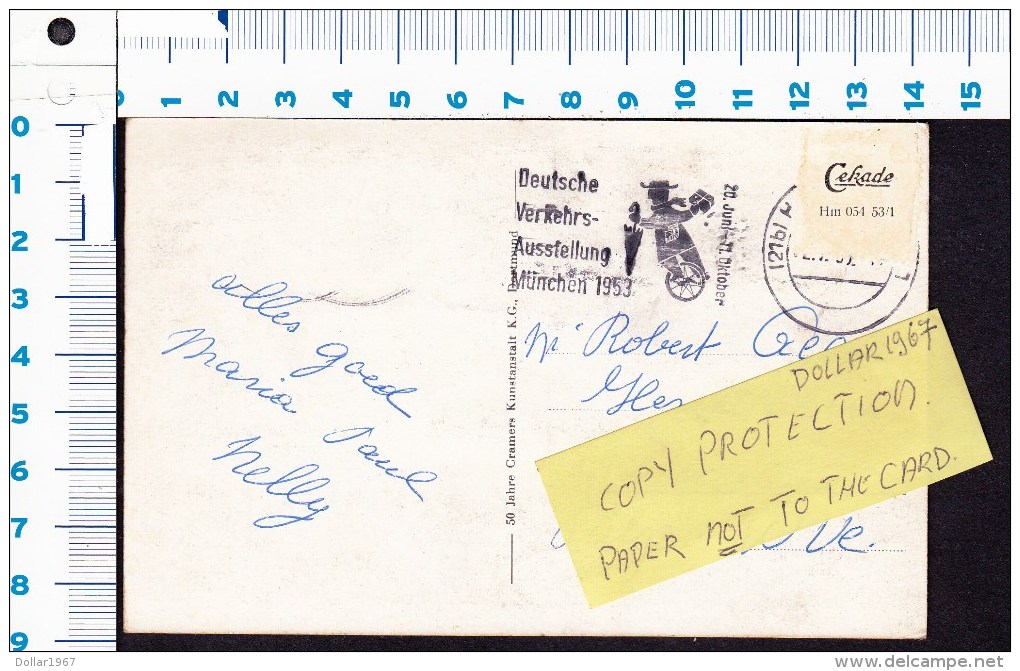 0 1 2 3 4 5 6 7 8 9 10 11 12 13 14 15
0
1
2
3
4
5
6
7
8
9
Deutsche
Verkehrs-
Ausstellung
München 1953
20. Juni - 11. Oktober
(21b)
Cekade
Hm 054 53/1
alles goed
Maria Paul
Nelly
50 Jahre Cramers Kunstanstalt K.G., Dortmund
Mr Robert
DOLLAR 1967
COPY PROTECTION.
PAPER NOT TO THE CARD.
Ve.
Dollar1967
delcampe.net